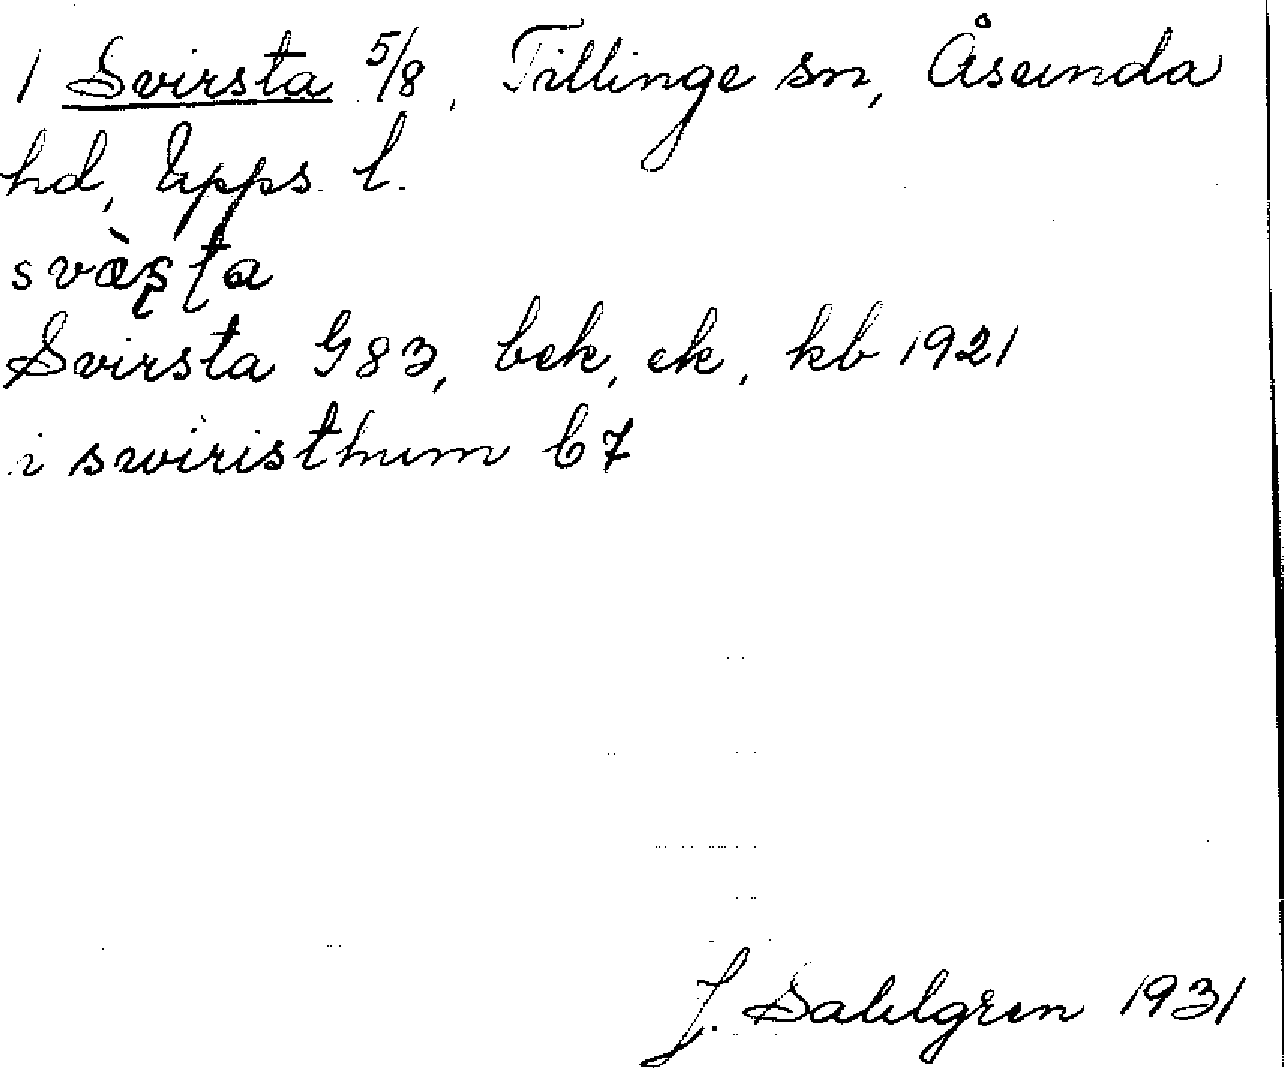 1 Svirsta 5/8, Tillinge sn, Åsunda
hd, Upps. l.
svæ̀ʂʈa
Svirsta G83, bek, ek, kb 1921
i swiristhum b7
J. Sahlgren 1931